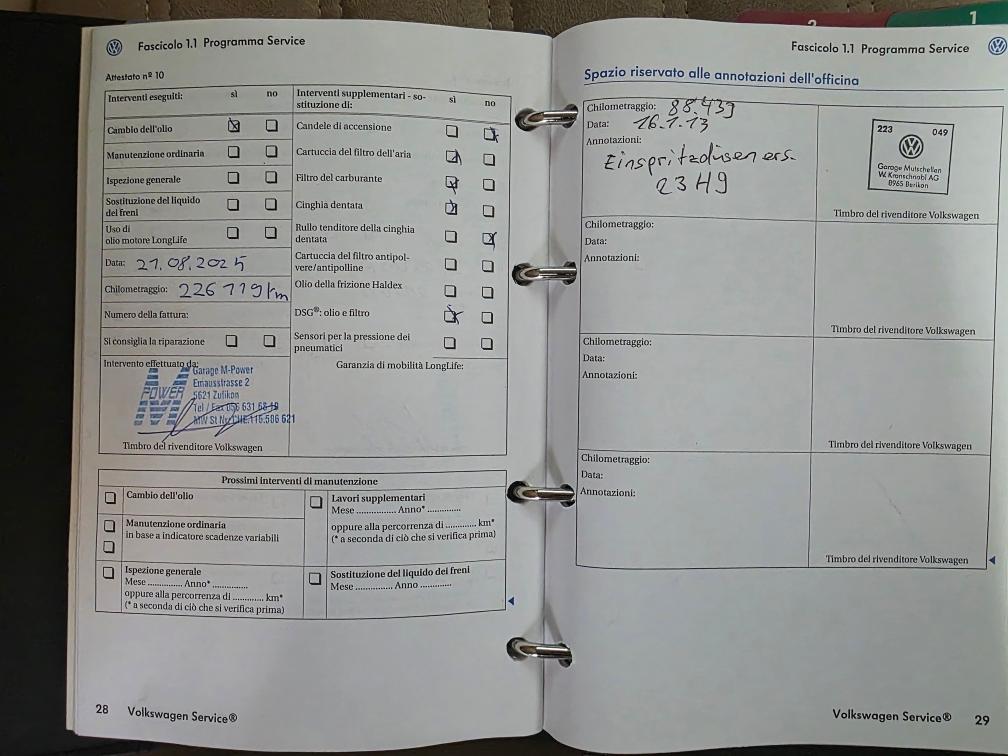 Fascicolo 1.1 Programma Service
Attestato nº 10
Interventi eseguiti: sì no
Cambio dell'olio
Manutenzione ordinaria
Ispezione generale
Sostituzione del liquido
dei freni
Uso di
olio motore LongLife
Data: 21.08.2025
Chilometraggio: 226 719 km
Numero della fattura:
Si consiglia la riparazione
Intervento effettuato da:
M POWER
Garage M-Power
Emausstrasse 2
5621 Zufikon
Tel / Fax 056 631 68 19
MW St Nr. CHE.116.586 621
Timbro del rivenditore Volkswagen
Interventi supplementari - so-
stituzione di: sì no
Candele di accensione
Cartuccia del filtro dell'aria
Filtro del carburante
Cinghia dentata
Rullo tenditore della cinghia
dentata
Cartuccia del filtro antipol-
vere/antipolline
Olio della frizione Haldex
DSG®: olio e filtro
Sensori per la pressione dei
pneumatici
Garanzia di mobilità LongLife:
Prossimi interventi di manutenzione
Cambio dell'olio
Manutenzione ordinaria
in base a indicatore scadenze variabili
Ispezione generale
Mese .............. Anno* ..............
oppure alla percorrenza di ............ km*
(* a seconda di ciò che si verifica prima)
Lavori supplementari
Mese .............. Anno* .............
oppure alla percorrenza di ............ km*
(* a seconda di ciò che si verifica prima)
Sostituzione del liquido dei freni
Mese .............. Anno .............
28 Volkswagen Service®
2
1
Fascicolo 1.1 Programma Service
Spazio riservato alle annotazioni dell'officina
Chilometraggio: 88.439
Data: 16.1.13
Annotazioni:
Einspritzdüsen ers.
23H9
223 049
Garage Mutschellen
W. Kronschnabl AG
8965 Berikon
Timbro del rivenditore Volkswagen
Chilometraggio:
Data:
Annotazioni:
Timbro del rivenditore Volkswagen
Chilometraggio:
Data:
Annotazioni:
Timbro del rivenditore Volkswagen
Chilometraggio:
Data:
Annotazioni:
Timbro del rivenditore Volkswagen
Volkswagen Service® 29